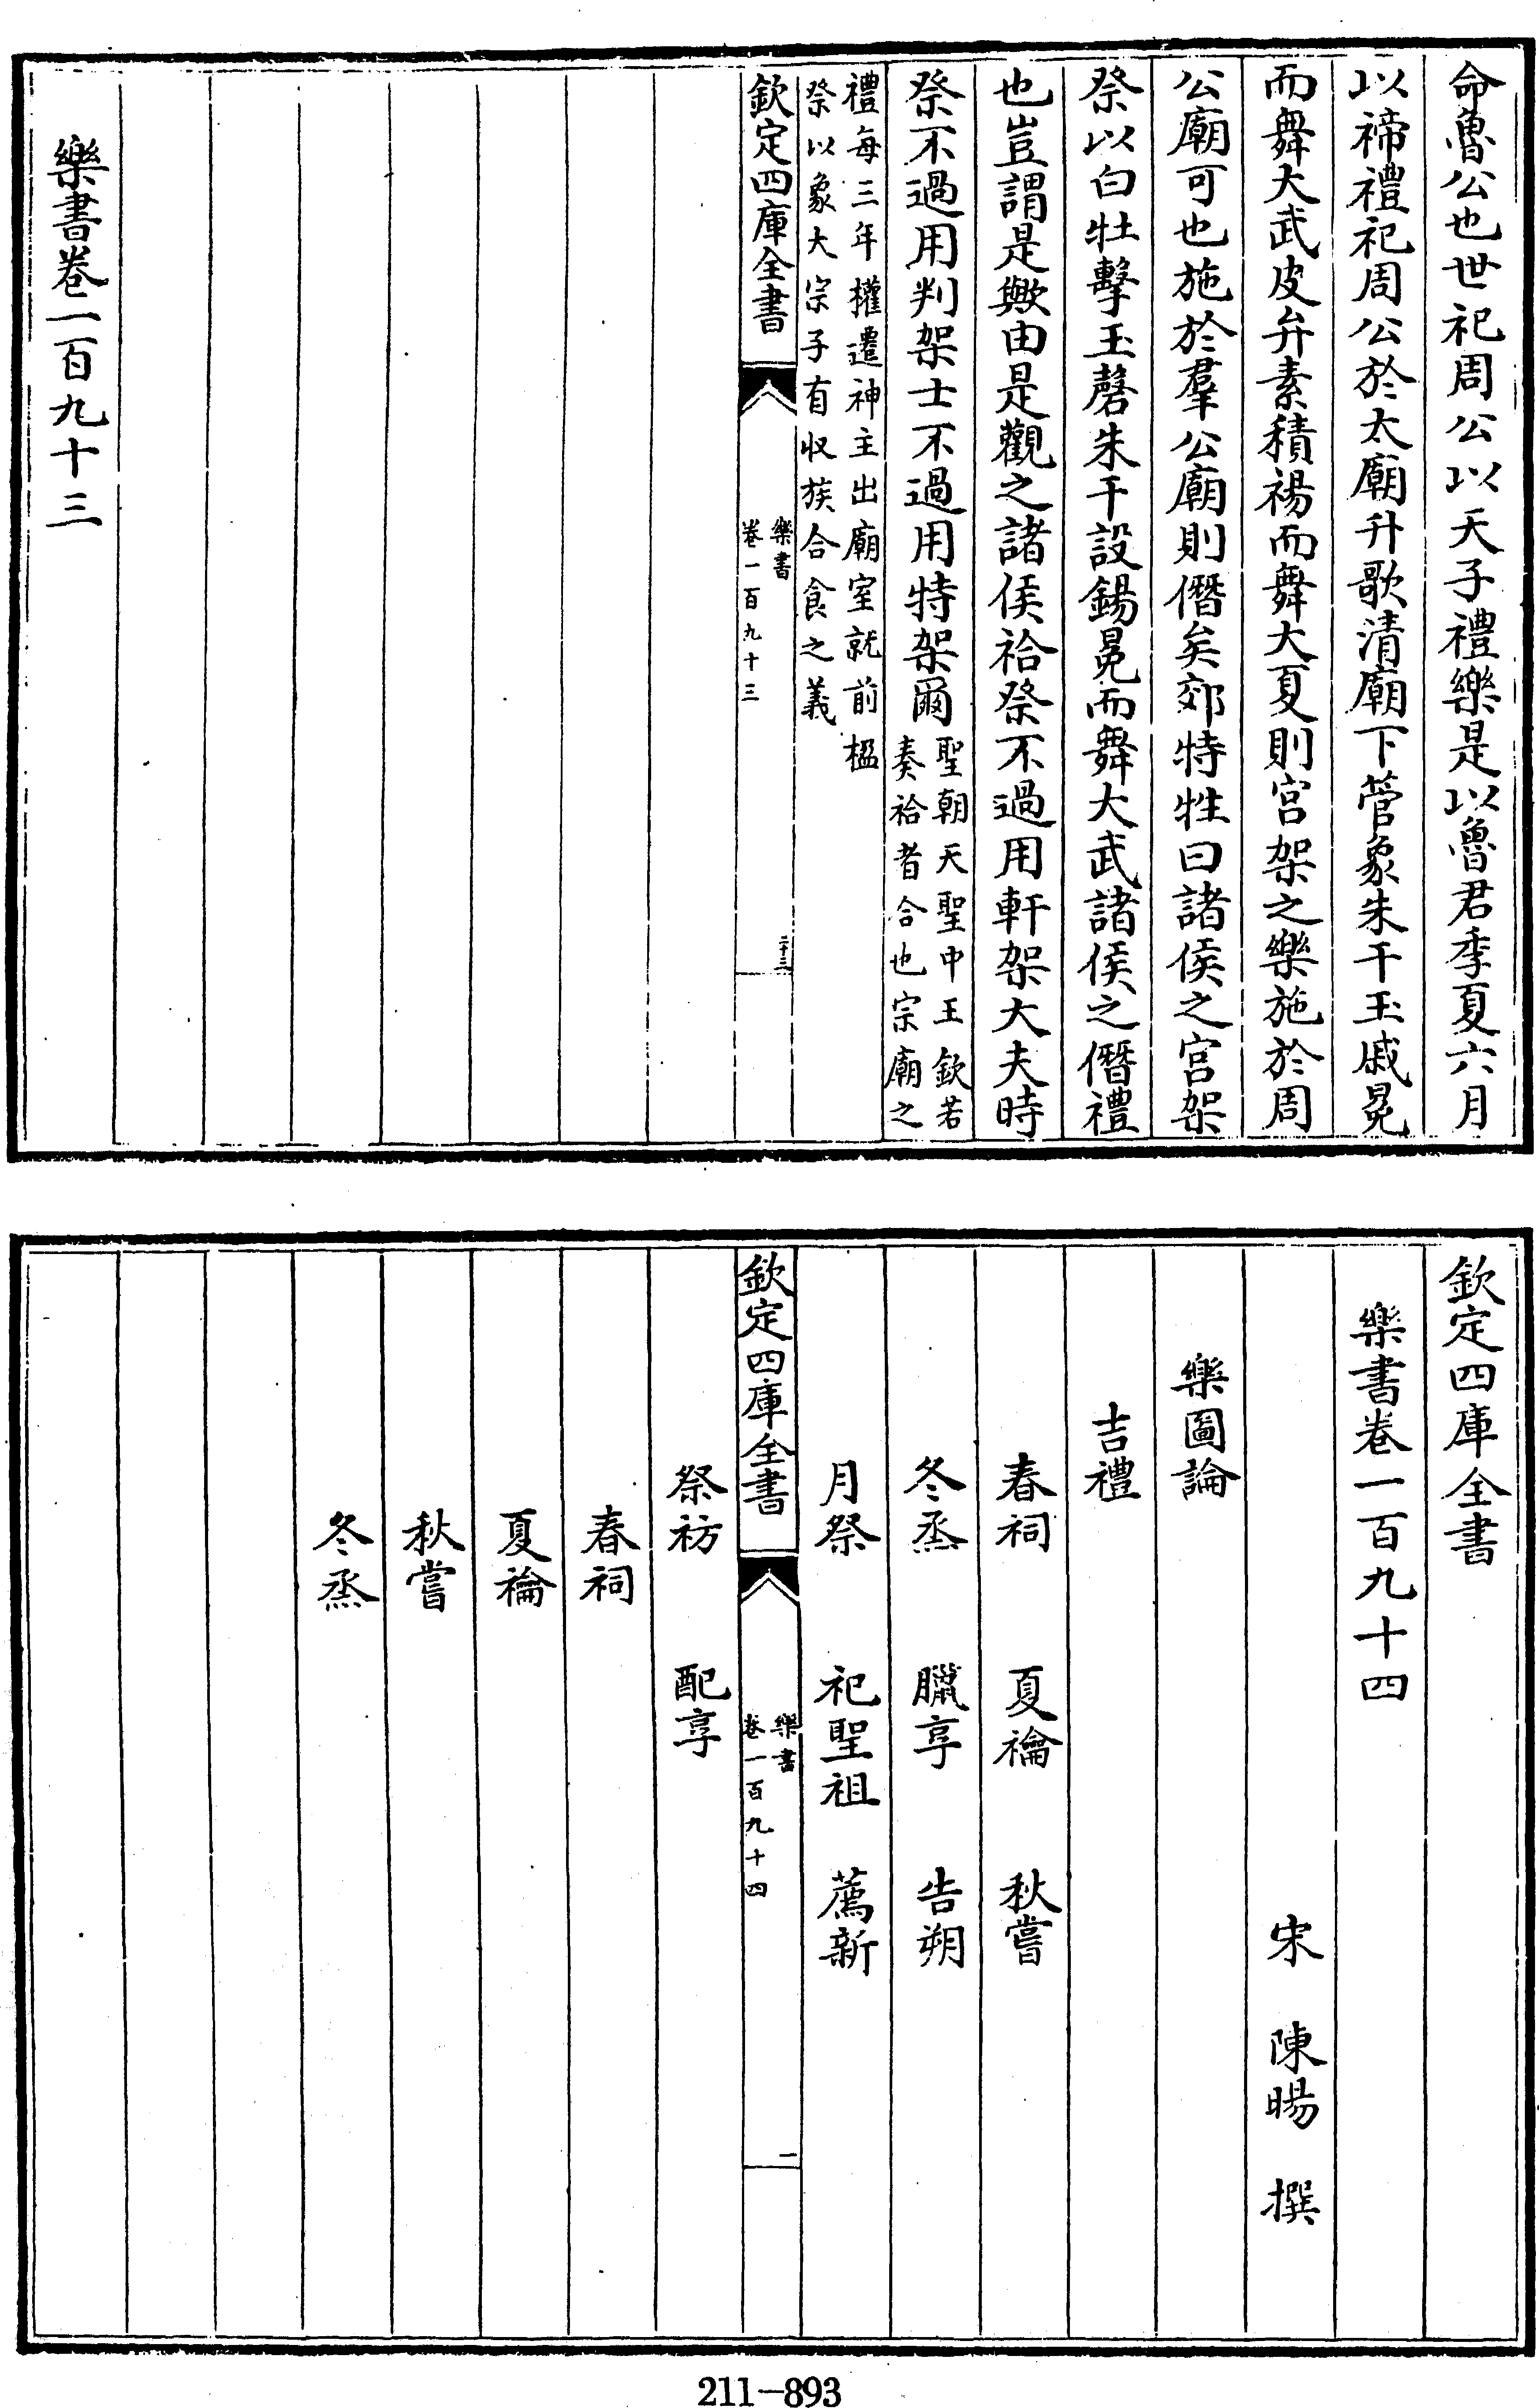 命魯公也世祀周公以天子禮樂是以魯君季夏六月
以禘禮祀周公於太廟升歌清廟下管象朱干玉戚冕
而舞大武皮弁素積裼而舞大夏則宫架之樂施於周
公廟可也施於羣公廟則僭矣郊特牲曰諸侯之宫架
祭以白牡擊玉磬朱干設錫冕而舞大武諸侯之僭禮
也豈謂是歟由是觀之諸侯祫祭不過用軒架大夫時
祭不過用判架士不過用特架爾聖朝天聖中王欽若
奏祫者合也宗廟之
禮每三年權遷神主出廟室就前楹
祭以象大宗子有収族合食之義
欽定四庫全書
樂書
卷一百九十三
二十三
樂書卷一百九十三
欽定四庫全書
樂書卷一百九十四
宋 陳暘 撰
樂圖論
吉禮
春祠 夏禴 秋嘗
冬烝 臘享 告朔
月祭 祀聖祖 薦新
欽定四庫全書
樂書
卷一百九十四
一
祭祊 配享
春祠
夏禴
秋嘗
冬烝
211-893